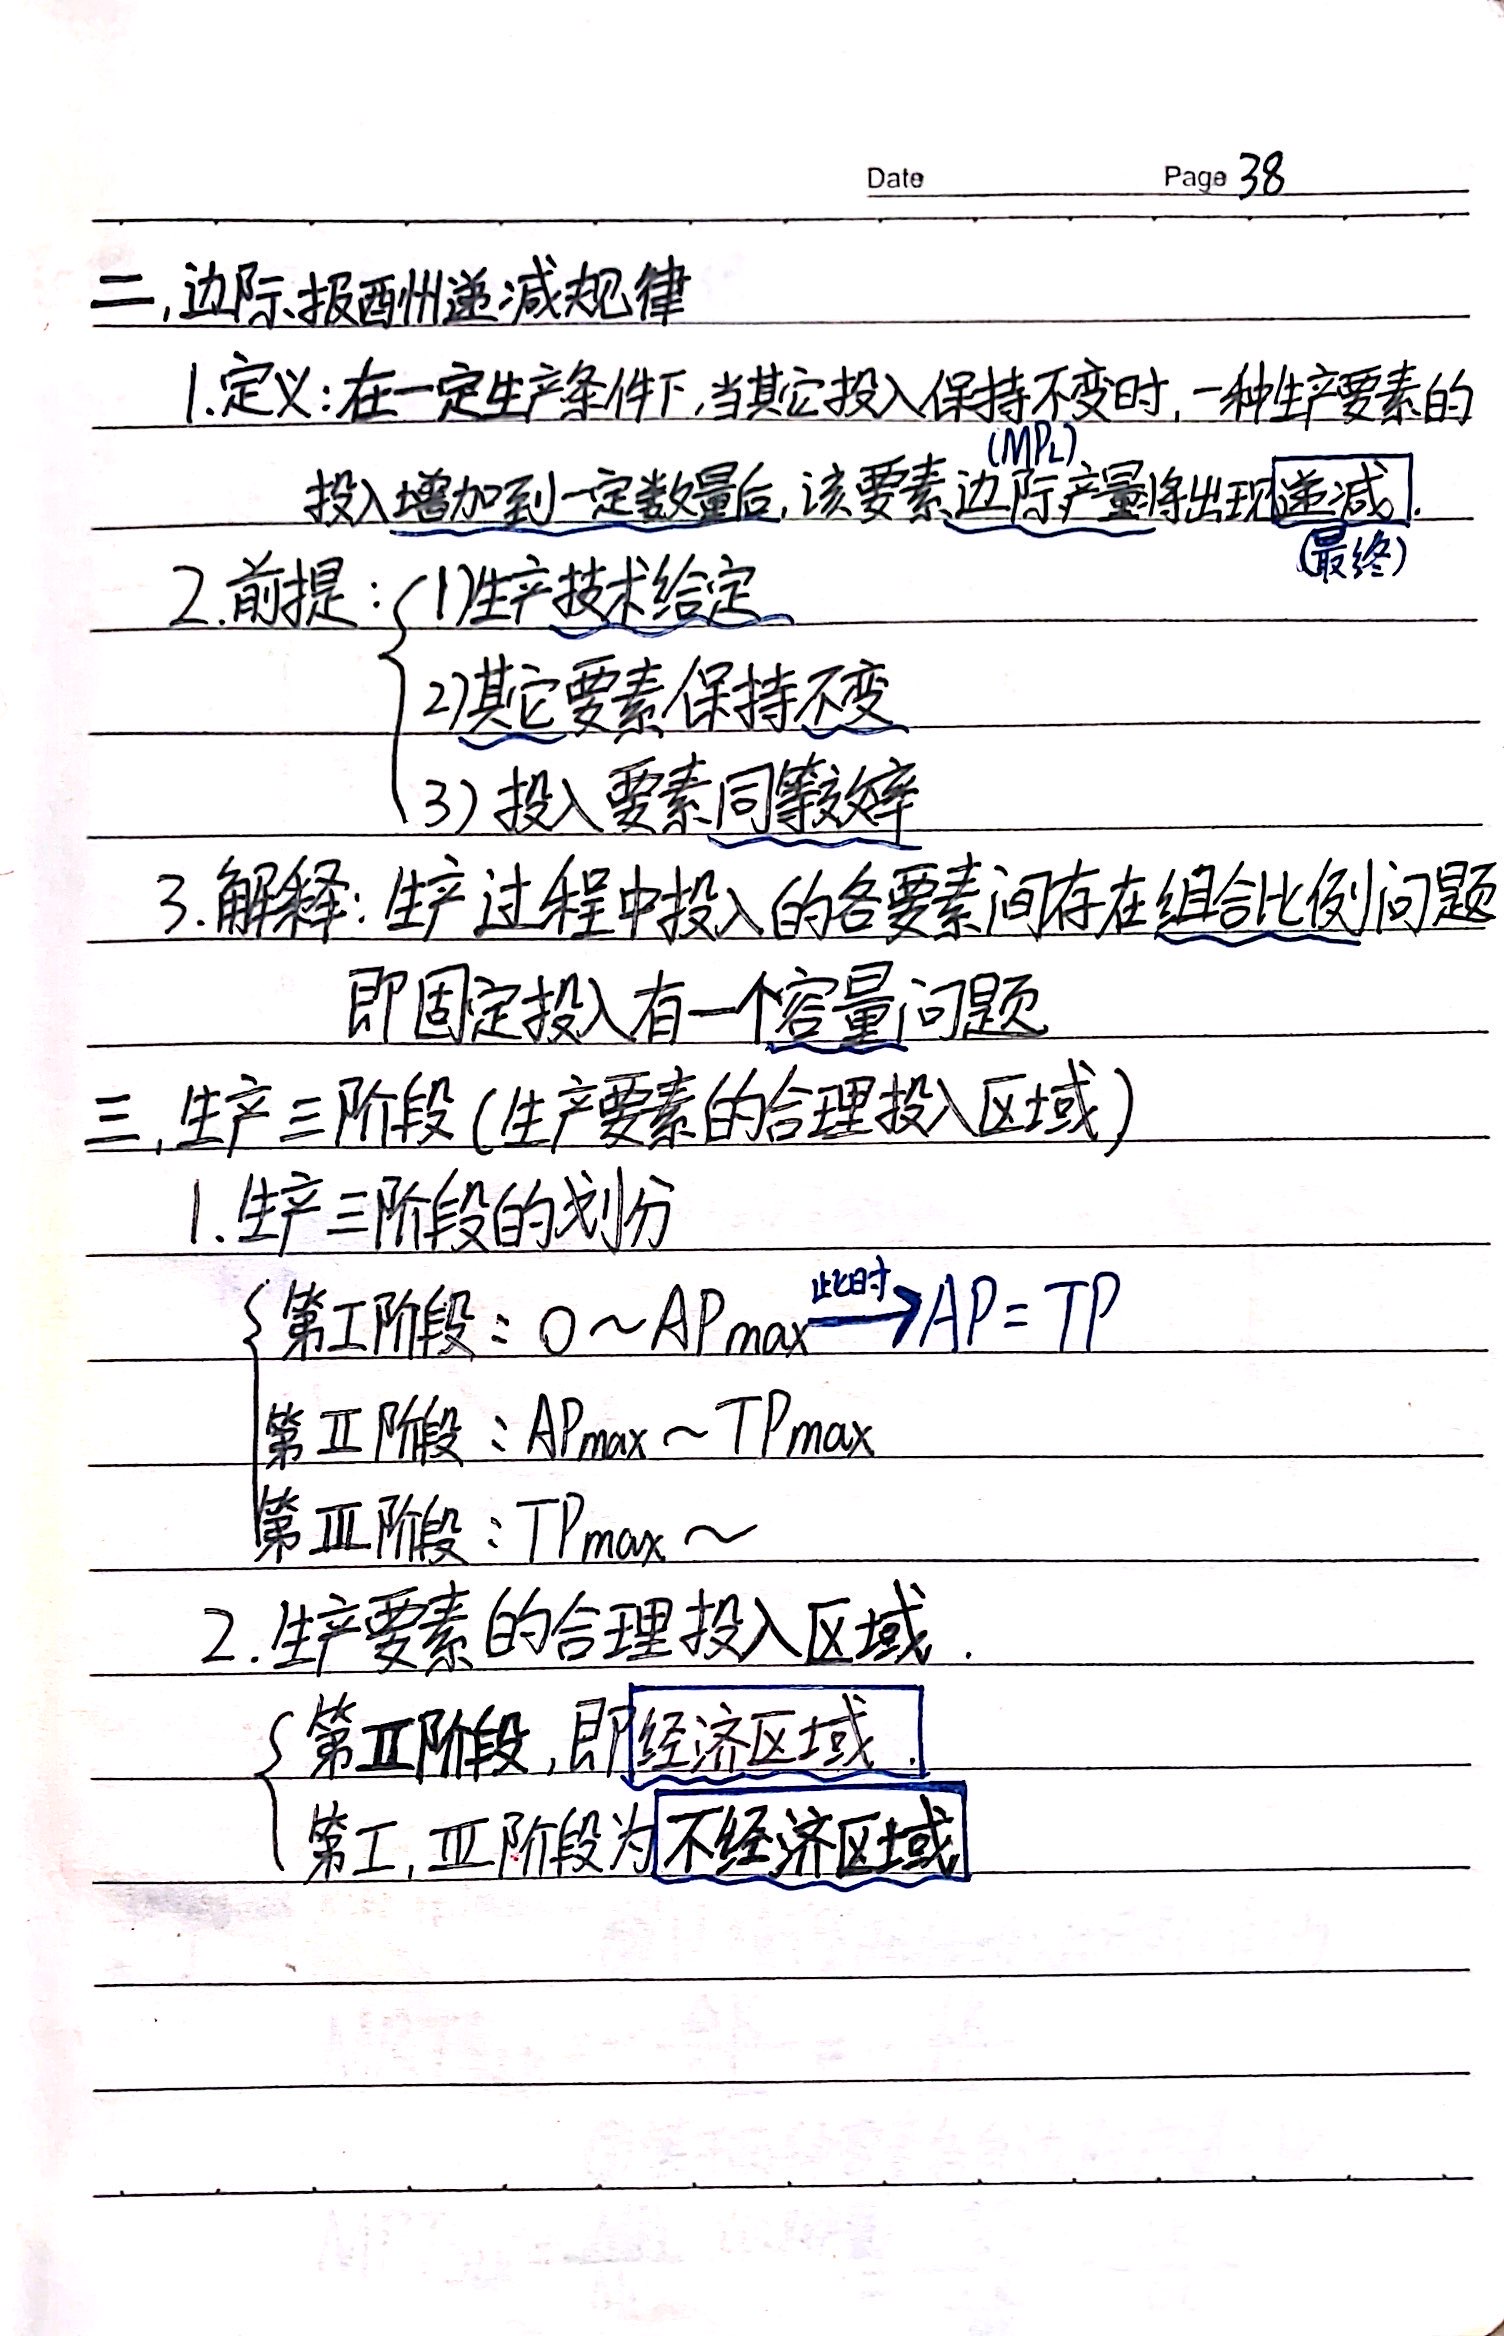 Date Page 38
二,边际报酬递减规律
1.定义:在一定生产条件下,当其它投入保持不变时,一种生产要素的
(MPL)
投入增加到一定数量后,该要素边际产量将出现递减.
(最终)
2.前提:(1)生产技术给定
2)其它要素保持不变
3)投入要素同等效率
3.解释:生产过程中投入的各要素间存在组合比例问题
即固定投入有一个容量问题
三,生产三阶段(生产要素的合理投入区域)
1.生产三阶段的划分
第I阶段:0~APmax 此时→AP=TP
第II阶段:APmax~TPmax
第III阶段:TPmax~
2.生产要素的合理投入区域.
第II阶段,即经济区域.
第I,III阶段为不经济区域